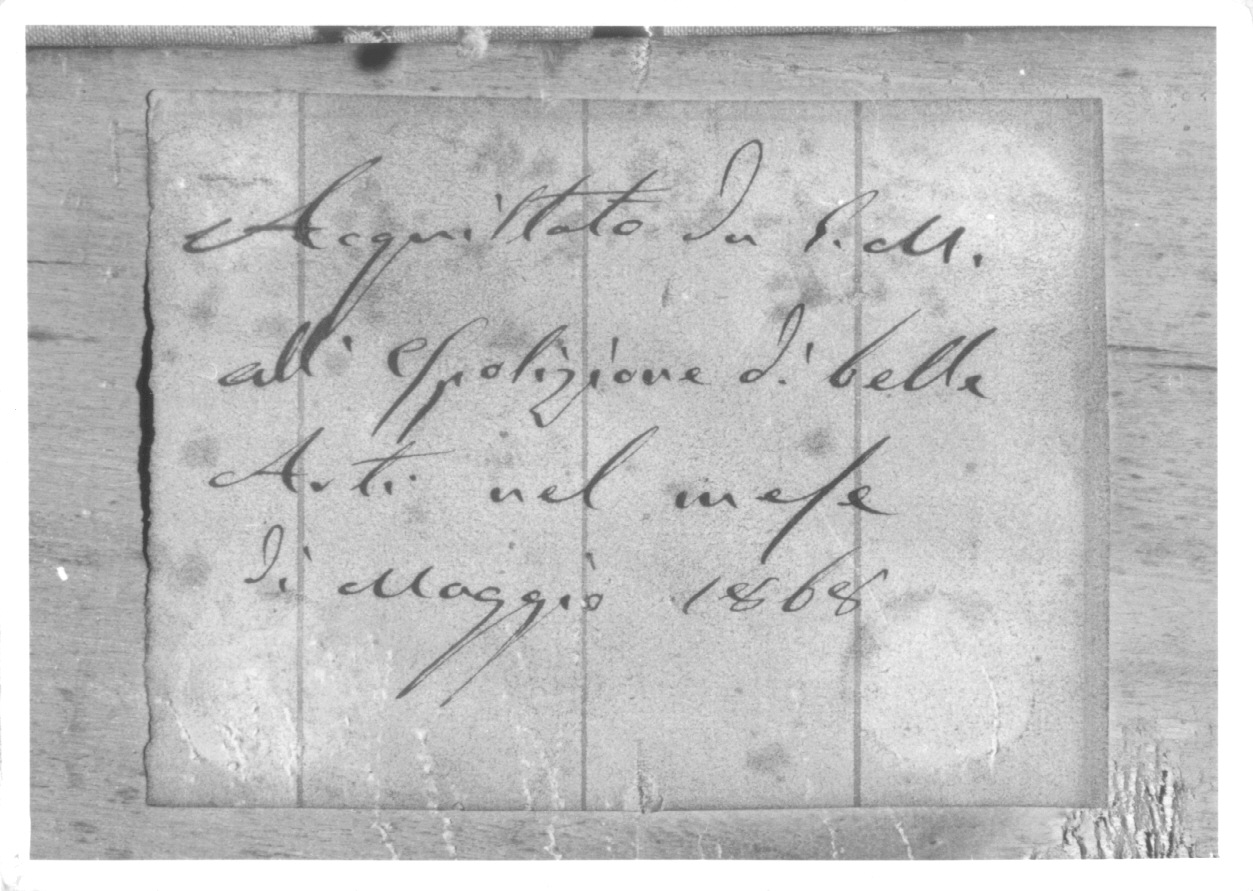 Acquistato da S. M.
all' Esposizione di belle
Arti nel mese
di Maggio 1868